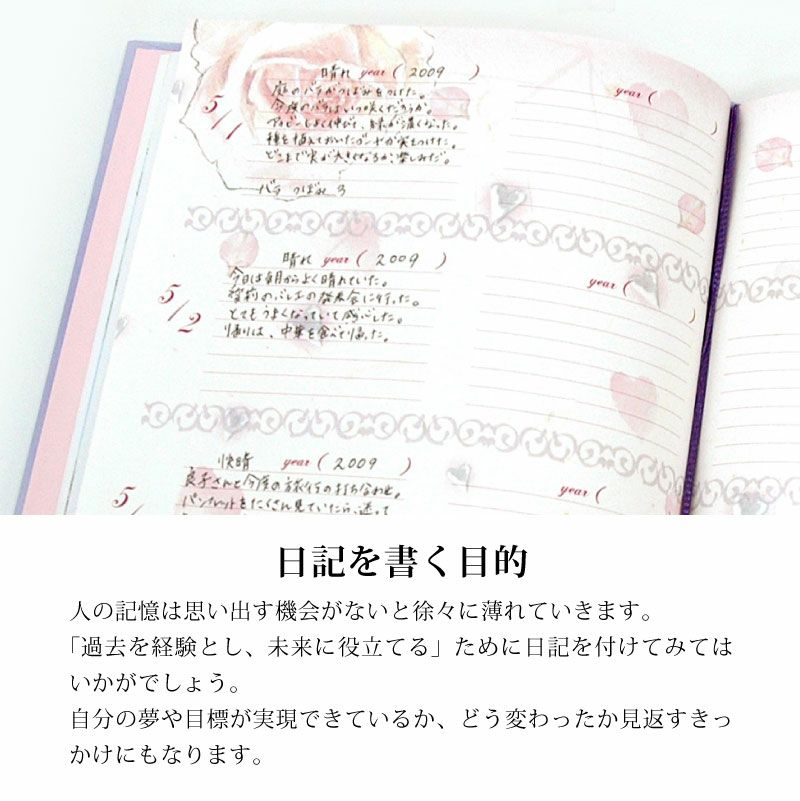 晴れ year ( 2009 )
5/1
庭のバラがつぼみをつけた。
今度のバラはいつ咲くだろうか。
種を植えておいたゴーヤが実をつけた。
どこまで実が大きくなるか、楽しみだ。
バラ つぼみ 3
year (
)
晴れ year ( 2009 )
5/2
今日は毎月からよく晴れていた。
のバレエの発表会に行った。
とてもうまくなっていて感心した。
帰りは、中華を食べて帰った。
year (
)
快晴 year ( 2009 )
5/
良子さんと今度の旅行の打ち合わせ。
パンフレットをたくさん見ていたら、迷って
year (
日記を書く目的
人の記憶は思い出す機会がないと徐々に薄れていきます。
「過去を経験とし、未来に役立てる」ために日記を付けてみては
いかがでしょう。
自分の夢や目標が実現できているか、どう変わったか見返すきっ
かけにもなります。